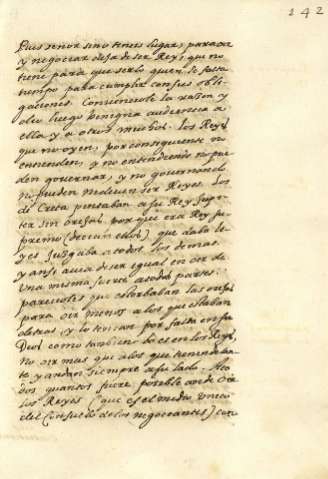 142
Pues señor si no teneis lugar, para oir
y negociar dexa de ser Rey, que no
tiene para que serlo quien le falta
tiempo para cumplir con sus obli
gaciones. Convenciole la razon y
dio luego benigna audiencia a
ella y a otros muchos. Los Reyes
que no oyen, por consiguiente no
entienden, y no entendiendo no pue
den governar, y no governando
ni pueden ni deven ser Reyes. Los
de Creta pintaban a su Rey Jupi
ter sin orejas. porque era Rey su
premo (decian ellos) que daba le
yes juzgaba a todos los demas
y ansi avia de ser igual en oir de
una misma suerte a todas partes:
parecioles que estorbaban las orejas
para oir menos a los que estaban
detras, y lo tenian por falta en su
Dios como tambien lo es en los Reyes,
no oir mas que a los que tienen delan
te, y andan siempre a su lado. A to
dos quantos fuere posible an de oir
los Reyes (que es el medio unico
del consuelo de los negociantes) con